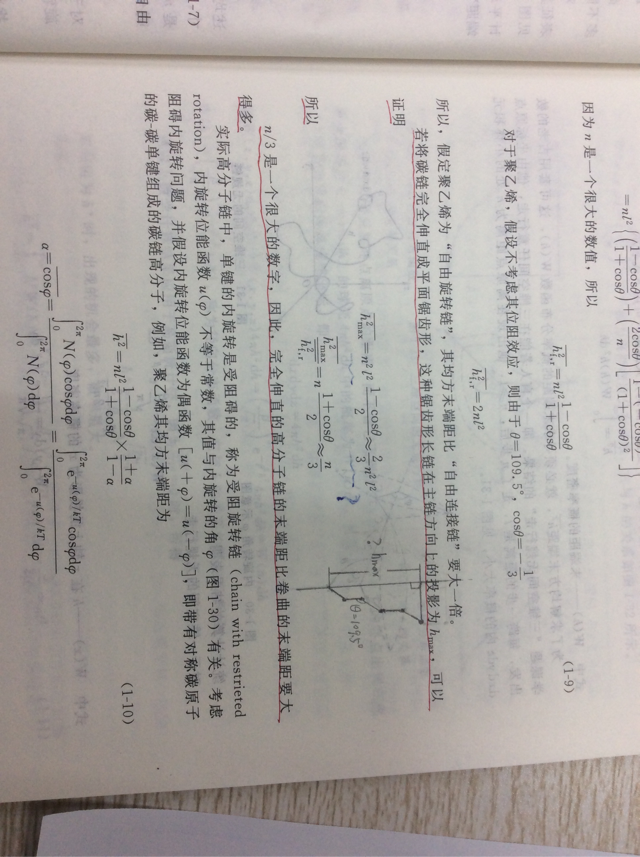 1-7)
自由
因为 n 是一个很大的数值，所以
\overline{h_{f,r}^2}=nl^2\frac{1-\cosθ}{1+\cosθ} (1-9)
对于聚乙烯，假设不考虑其位阻效应，则由于 θ=109.5°，cosθ=-\frac{1}{3}
\overline{h_{f,r}^2}=2nl^2
所以，假定聚乙烯为“自由旋转链”，其均方末端距比“自由连接链”要大一倍。
若将碳链完全伸直成平面锯齿形，这种锯齿形长链在主链方向上的投影为 h_{max}，可以
证明
\overline{h_{max}^2}=n^2l^2\frac{1-\cosθ}{2}≈\frac{2}{3}n^2l^2
? h_{max}
θ=109.5°
?
所以
\frac{\overline{h_{max}^2}}{\overline{h_{f,r}^2}}=n\frac{1+\cosθ}{2}≈\frac{n}{3}
n/3 是一个很大的数字，因此，完全伸直的高分子链的末端距比卷曲的末端距要大
得多。
实际高分子链中，单键的内旋转是受阻碍的，称为受阻旋转链（chain with restrieted
rotation），内旋转位能函数 u(φ) 不等于常数，其值与内旋转的角 φ（图 1-30）有关。考虑
阻碍内旋转问题，并假设内旋转位能函数为偶函数［u(+φ)=u(-φ)］，即带有对称碳原子
的碳-碳单键组成的碳链高分子，例如，聚乙烯其均方末端距为
\overline{h^2}=nl^2\frac{1-\cosθ}{1+\cosθ}×\frac{1+α}{1-α} (1-10)
α=\overline{\cosφ}=\frac{\int_0^{2π}N(φ)\cosφdφ}{\int_0^{2π}N(φ)dφ}=\frac{\int_0^{2π}e^{-u(φ)/kT}\cosφdφ}{\int_0^{2π}e^{-u(φ)/kT}dφ}